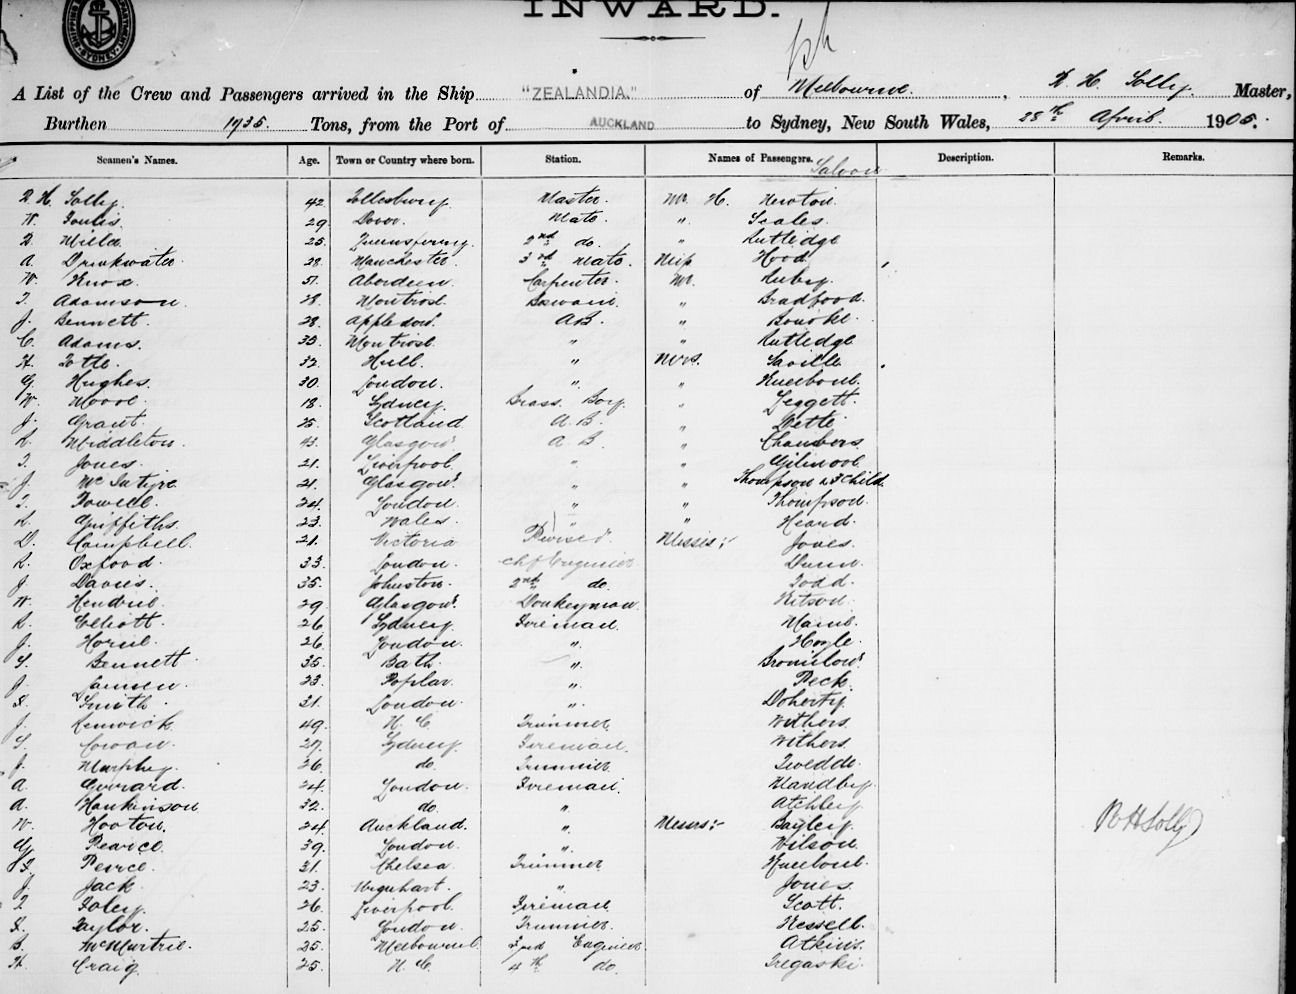 INWARD.
SYDNEY
A List of the Crew and Passengers arrived in the Ship "ZEALANDIA." of Melbourne, R. H. Solly. Master,
Burthen 1735. Tons, from the Port of AUCKLAND to Sydney, New South Wales, 28th April. 1905.
Seamen's Names. Age. Town or Country where born. Station. Names of Passengers. Description. Remarks.
Saloon
R. H. Solly. 42. Tollesbury Master. Mr. H. Newton.
29. Dover. Mate. " Scales.
25. 2nd do. " Rutledge
A. Drinkwater. 28. Manchester. 3rd Mate. Miss Hood.
W. Knox. 51. Aberdeen. Carpenter. Mr. Ruby.
T. Adamson. 28. Montrose. Boswain. " Bradford.
J. Bennett. 28. Appledore. A.B. " Bourke.
C. Adams. 33. Montrose " " Rutledge
H. 32. Hull. " Mrs. Saville
G. Hughes. 30. London. " "
W. Moore. 18. Sydney. Brass Boy. " Leggett.
J. Grant. 25. Scotland A.B. " Dette
R. Middleton. 43. Glasgow A.B. " Chambers
T. Jones. 21. Liverpool. " " Gilmore.
J. McIntyre 21. Glasgow. " " Thompson & 3 Child.
T. Powell. 24. London. " " Thompson.
R. Griffiths. 23. Wales. " " Heard.
D. Campbell. 21. Victoria Misses:- Jones.
R. Oxford. 33. London. chf Engineer Dunn.
J. Davies. 35. Johnston. 2nd do. Todd.
29. Glasgow. Donkeyman. Kitson.
R. Elliott. 26 Sydney Fireman.
J. Horne. 26. London. " Hoyle.
S. Bennett. 35. Bath. " Bromilow.
J. 23. Poplar. " Peck.
S. Smith. 21. London. " Doherty.
J. Renwick. 49. N.C. Trimmer Withers
S. Cowan. 27. Sydney. Fireman. Withers.
J. Murphy. 26. do. Trimmer
A. Gerrard. 24. London. Fireman.
A. Hankinson 32. do. " Atchley
W. Hooton. 24. Auckland. " Messrs:- Bayley.
G. Pearce. 39. London. " Wilson.
Peirce. 21. Chelsea. Trimmer
J. Jack. 23. Urquhart. " Jones.
T. Foley. 26. Liverpool. Fireman Scott.
S. Taylor. 25. London. Trimmer. Kessell.
B. McMurtrie. 25. Melbourne. 3rd Engineer Atkins.
H. Craig. 25. N.C. 4th do. Tregaski.
R H Solly